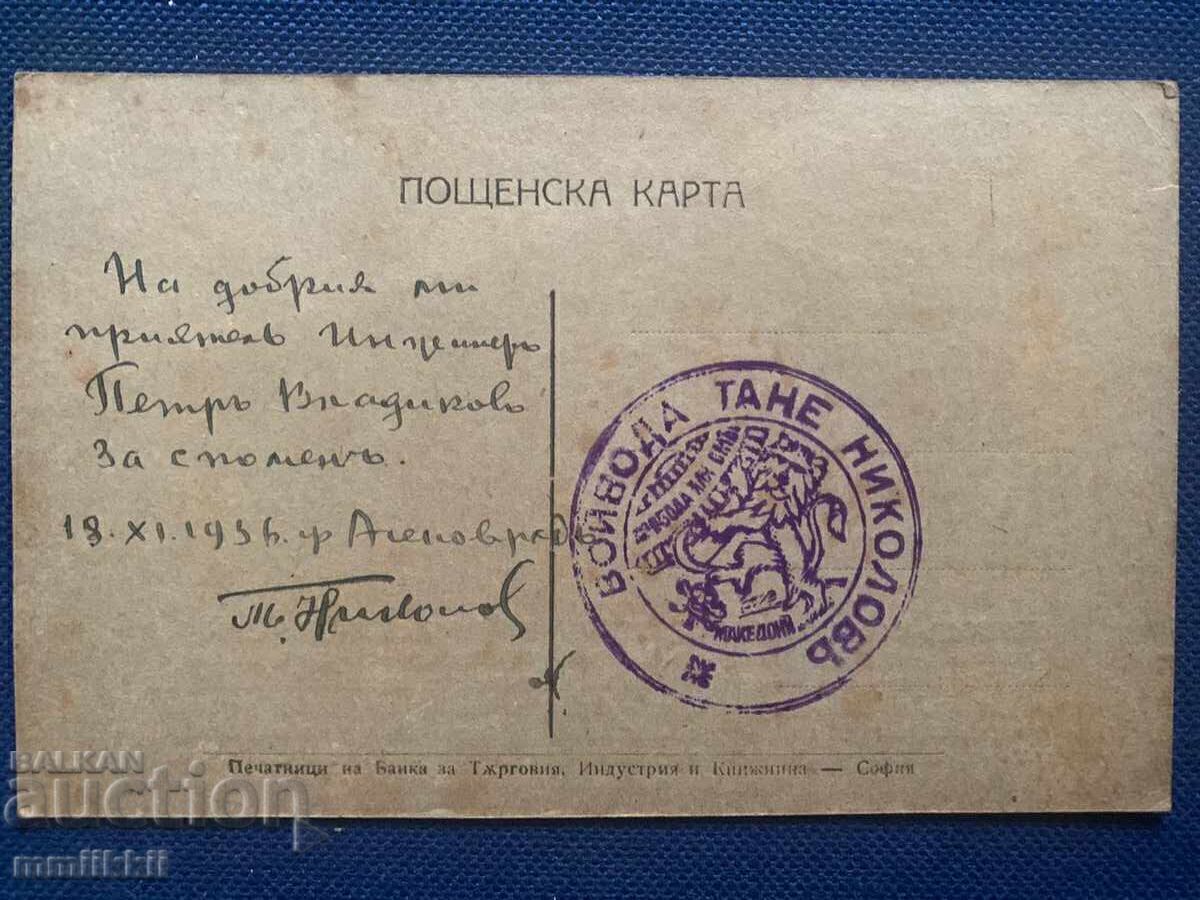 ПОЩЕНСКА КАРТА
На добрия ми
приятель Инженеръ
Петръ Владиковъ
За споменъ.
13.XI.1936. гр Асеновградъ
Т. Николов
ВОЙВОДА ТАНЕ НИКОЛОВЪ
СВОБОДА ИЛИ СМЪРТЬ
МАКЕДОНИЯ
Печатници на Банка за Тѫрговия, Индустрия и Книжнина — София
BALKAN
auction
mmiikkii